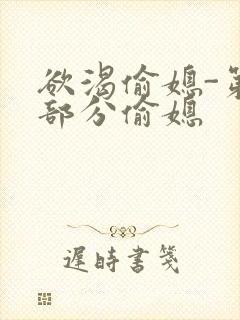 欲渴偷媳-第
部分偷媳
遲時書箋